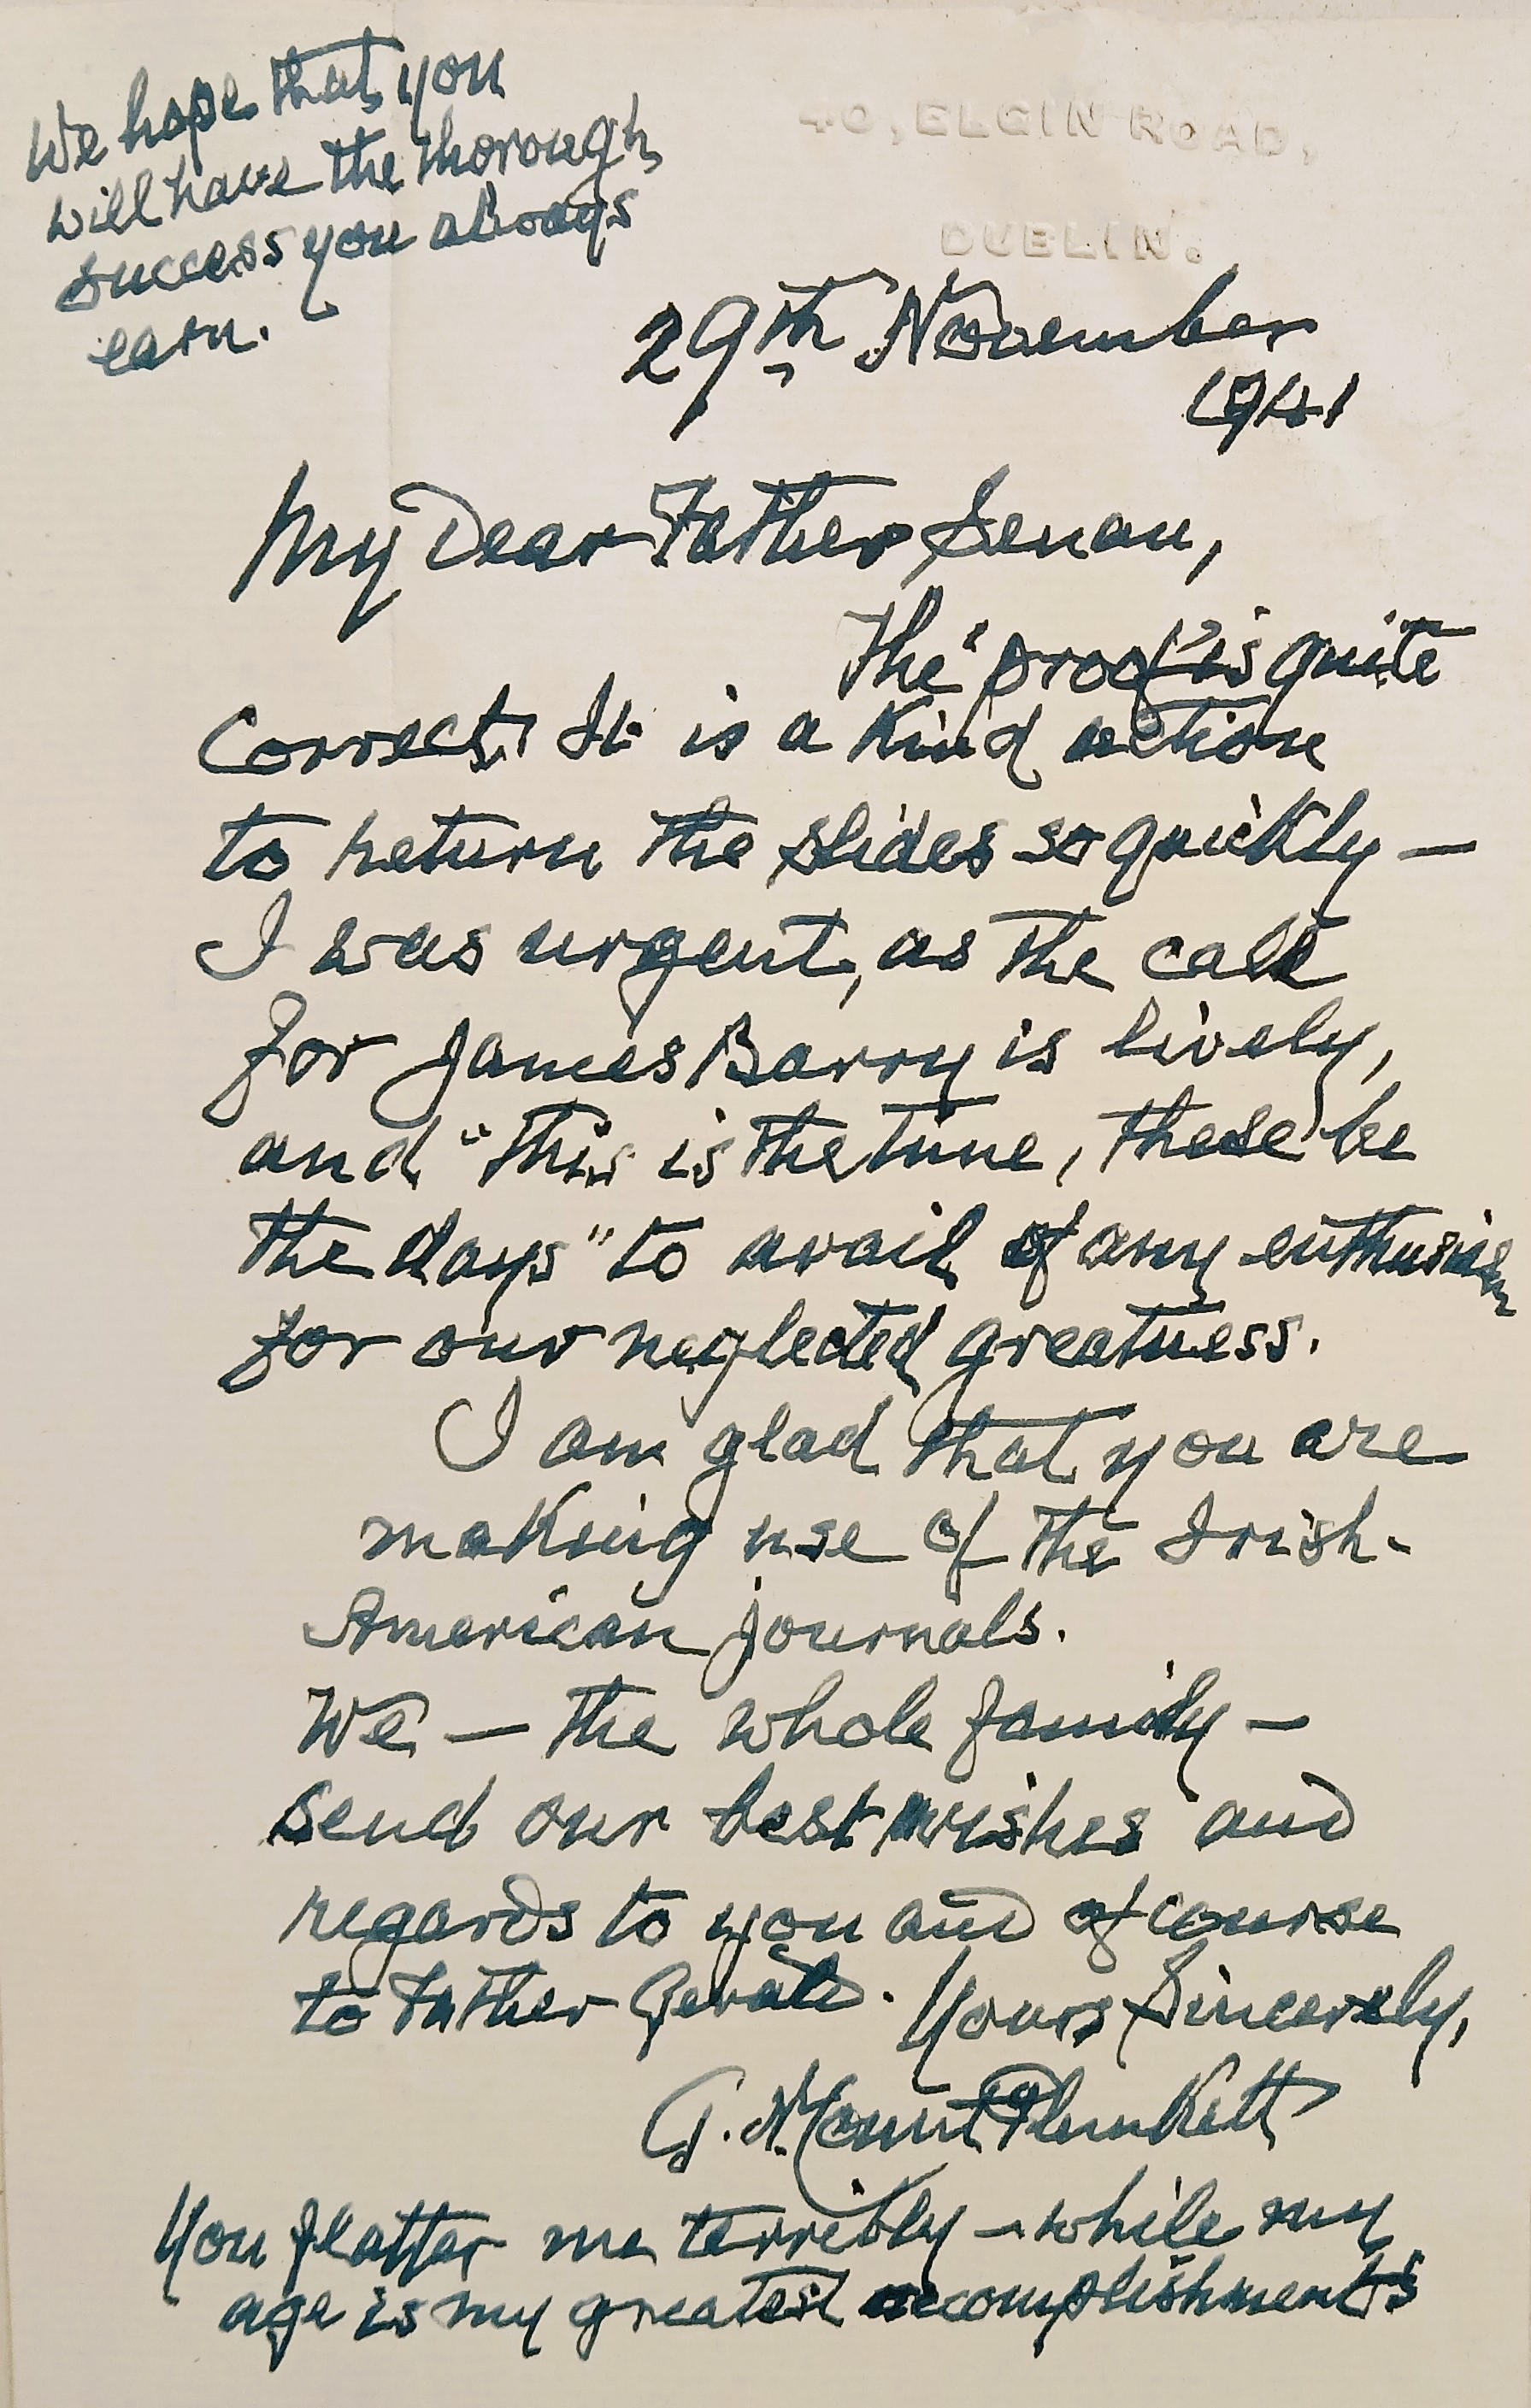 We hope that you
will have the thorough
success you always
earn.
40, ELGIN ROAD,
DUBLIN.
29th November
1941
My Dear Father Senan,
The "proof" is quite
correct. It is a kind action
to return the slides so quickly —
I was urgent, as the call
for James Barry is lively,
and "this is the time, these be
the days" to avail of any enthusiasm
for our neglected greatness.
I am glad that you are
making use of the Irish-
American journals.
We — the whole family —
send our best wishes and
regards to you and of course
to Father Gerald. Yours Sincerely,
G. N. Count Plunkett
You flatter me terribly — while my
age is my greatest accomplishments